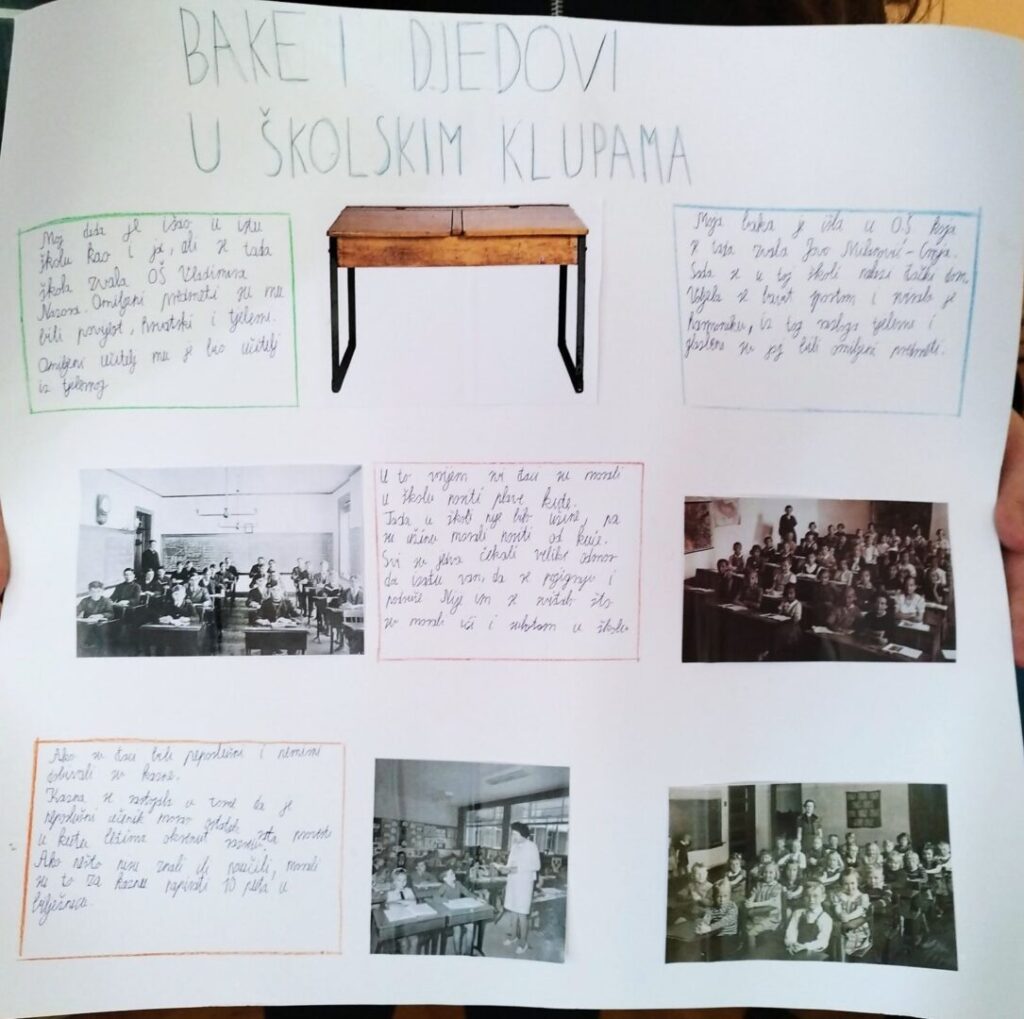 BAKE I DJEDOVI
U ŠKOLSKIM KLUPAMA
Moj dida je išao u istu
školu kao i ja, ali se tada
škola zvala OŠ Vladimira
Nazora. Omiljeni predmeti su mu
bili povijest, hrvatski i tjelesni.
Omiljeni učitelj mu je bio učitelj
iz tjelesnog
Moja baka je išla u OŠ koja
se tada zvala Jovo Milanović-
Sada se u toj školi nalazi đački dom.
Voljela se bavit sportom i svirala je
harmoniku, iz tog razloga tjelesni i
glazbeni su joj bili omiljeni predmeti.
U to vrijeme svi đaci su morali
u školu nositi plave kute.
Tada u školi nije bilo užine, pa
su užinu morali nositi od kuće.
Svi su jedva čekali veliki odmor
da izađu van, da se poigraju i
podruže Nije im se sviđalo što
su morali ići i subotom u školu
Ako su đaci bili neposlušni i nemirni
dobivali su kazne.
Kazna se sastojala u tome da je
neposlušni učenik morao ostatak sata provesti
u kutu leđima okrenut razredu.
Ako nešto nisu znali ili naučili, morali
su to za kaznu napisati 10 puta u
bilježnicu.